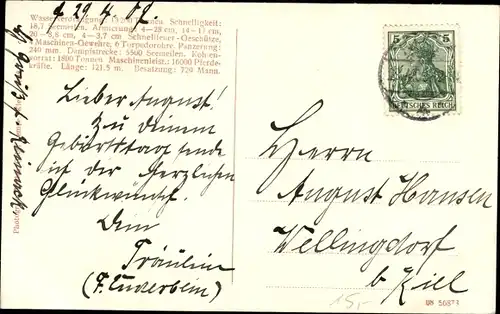 d 29.4.07.
Wasserverdrängung 13200 Tonnen. Schnelligkeit:
18,7 Seemeilen. Armierung 4—28 cm, 14—17 cm,
20—8,8 cm, 4—3,7 cm Schnellfeuer-Geschütze,
4 Maschinen-Gewehre, 6 Torpedorohre. Panzerung:
240 mm. Dampfstrecke: 5500 Seemeilen. Kohlen-
vorrat: 1800 Tonnen. Maschinenleist.: 16000 Pferde-
kräfte. Länge: 121,5 m. Besatzung: 729 Mann.
Lieber August!
Zu deinem
Geburtstag sende
ich dir herzlichen
Glückwunsch.
Dein
Fräulein
5 5
DEUTSCHES REICH
Herrn
August Hansen
Wellingdorf
b Kiel
15,-
56873